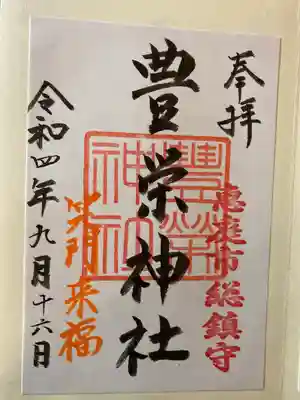 奉拝
恵庭市総鎮守
豊栄神社
豐榮神社
笑門来福
令和四年九月十六日